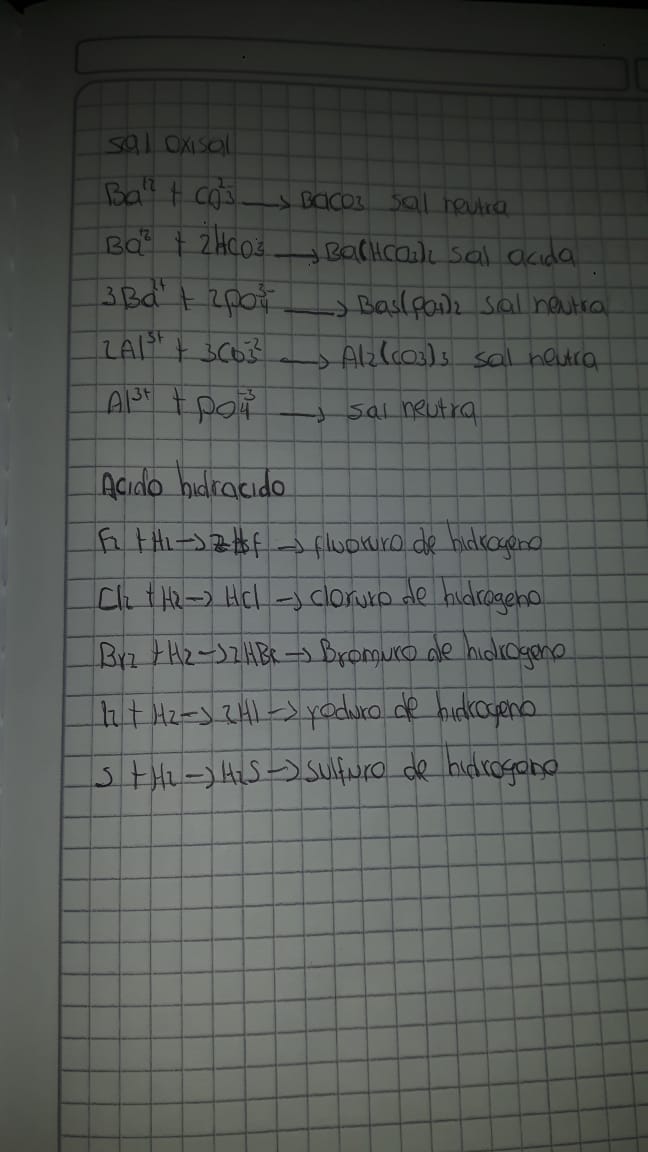 sal oxisal
Ba⁺² + CO₃²⁻ → BaCO3 sal neutra
Ba² + 2HCO₃ → Ba(HCO₃)₂ sal acida
3Ba²⁺ + 2PO₄³⁻ → Ba3(PO4)2 sal neutra
2Al³⁺ + 3CO₃⁻² → Al2(CO3)3 sal neutra
Al³⁺ + PO₄⁻³ → sal neutra
Acido hidracido
F2 + H2 → HF → fluoruro de hidrogeno
Cl2 + H2 → HCl → cloruro de hidrogeno
Br2 + H2 → 2HBr → Bromuro de hidrogeno
I2 + H2 → 2HI → yoduro de hidrogeno
S + H2 → H2S → sulfuro de hidrogeno